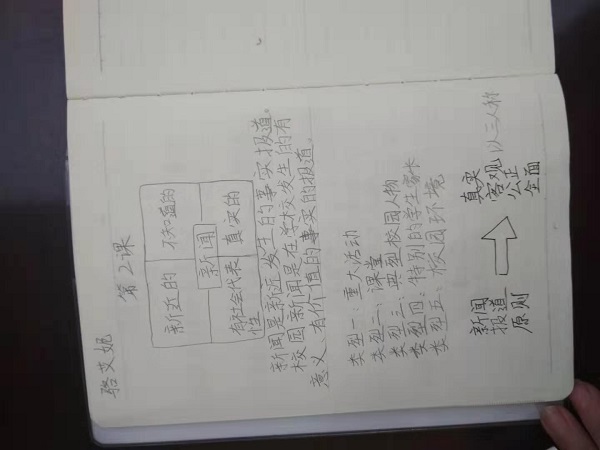 骆艾妮
第2课
新近的 不知道的
新闻
有社会代表性 真实的
新闻是新近发生的事实报道。
校园新闻是在学校发生的有
意义、有价值的事实的报道。
类型一:重大活动
类型二:课堂
类型三:典型校园人物
类型四:特别的学生家长
类型五:校园环境
新闻
报道
原则
真实
客观
公正
全面
以三人称